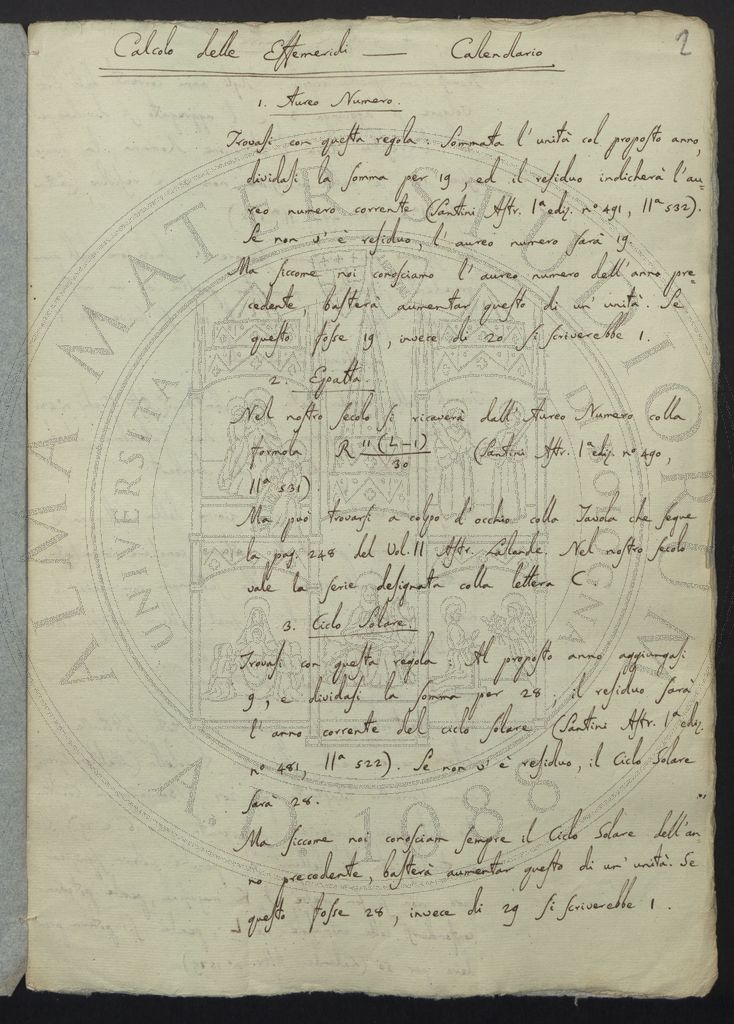 2
Calcolo delle Effemeridi — Calendario
1. Aureo Numero.
Trovasi con questa regola: Sommata l'unità col proposto anno,
dividasi la somma per 19, ed il residuo indicherà l'au-
reo numero corrente (Santini Astr. 1ª ediz. nº 491, 11ª 532).
Se non v'è residuo, l'aureo numero sarà 19.
Ma siccome noi conosciamo l'aureo numero dell'anno pre-
cedente, basterà aumentar questo di un'unità. Se
questo fosse 19, invece di 20 si scriverebbe 1.
2. Epatta.
Nel nostro secolo si ricaverà dall'Aureo Numero colla
formola R 11(L-1)/30 (Santini Astr. 1ª ediz. nº 490,
11ª 531)
Ma può trovarsi a colpo d'occhio colla Tavola che segue
la pag. 248 del Vol. II Astr. Lalande. Nel nostro secolo
vale la serie designata colla lettera C
3. Ciclo Solare.
Trovasi con questa regola: Al proposto anno aggiungasi
9, e dividasi la somma per 28; il residuo sarà
l'anno corrente del ciclo solare (Santini Astr. 1ª ediz.
nº 481, 11ª 522). Se non v'è residuo, il Ciclo Solare
sarà 28.
Ma siccome noi conosciam sempre il Ciclo Solare dell'an-
no precedente, basterà aumentar questo di un'unità. Se
questo fosse 28, invece di 29 si scriverebbe 1.
ALMA MATER STUDIORUM
UNIVERSITA DI BOLOGNA
A.D. 1088